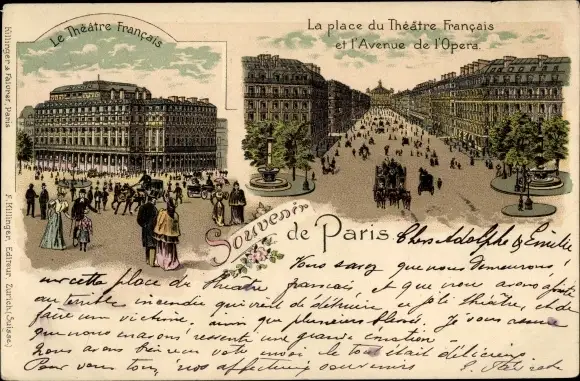 Le Théâtre Français
La place du Théâtre Français
et l'Avenue de l'Opera.
Killinger & Faivrer, Paris
F. Killinger, Editeur, Zurich (Suisse.)
Souvenir
de Paris.
Chers Adolphe & Emilie
Vous savez que nous demeurons
sur cette place du Théâtre français et que nous avons
au terrible incendie qui vient de détruire ce joli théâtre, et de
faire une victime, ainsi que plusieurs blessés. Je vous assure
que nous avons ressenti une grande émotion.
Nous avons bien reçu votre envoi, le tout était délicieux
Pour vous tous, nos affectueux souvenirs